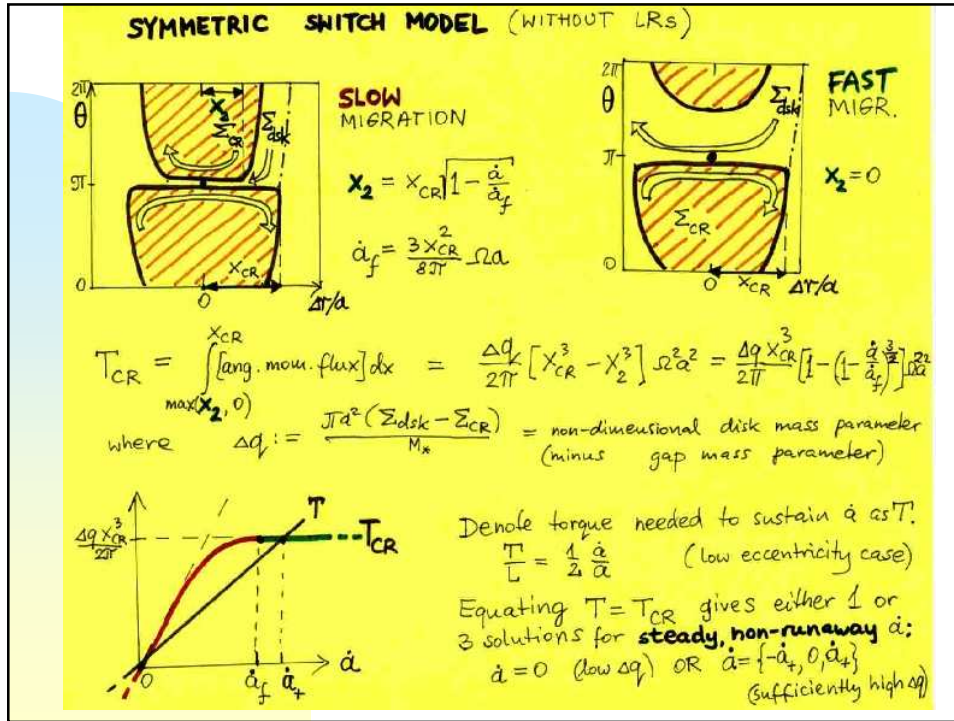 SYMMETRIC SWITCH MODEL (WITHOUT LRs)
2π
θ
π
0
x₂
Σ_CR
Σdsk
x_CR
0
Δr/a
SLOW
MIGRATION
x₂ = x_CR √(1 - ȧ/ȧ_f)
ȧ_f = 3x²_CR/8π Ωa
2π
θ
π
0
Σdsk
Σ_CR
0
x_CR
Δr/a
FAST
MIGR.
x₂ = 0
T_CR = ∫_{max(x₂,0)}^{x_CR} [ang. mom. flux] dx = Δq/2π [x³_CR - x³₂] Ω²a² = Δq x³_CR/2π [1 - (1 - ȧ/ȧ_f)^{3/2}] Ω²a²
where Δq := πa² (Σdsk - Σ_CR)/M* = non-dimensional disk mass parameter
(minus gap mass parameter)
Δq x³_CR/2π
T
T_CR
0
ȧ_f
ȧ₊
ȧ
Denote torque needed to sustain ȧ as T.
T/L = 1/2 ȧ/a (low eccentricity case)
Equating T = T_CR gives either 1 or
3 solutions for steady, non-runaway ȧ:
ȧ = 0 (low Δq) OR ȧ = {-ȧ₊, 0, ȧ₊}
(sufficiently high Δq)